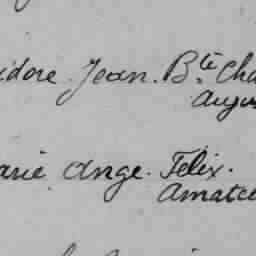 idore Jean. Bte Cha
Augu
arie Ange. Felix.
Amate